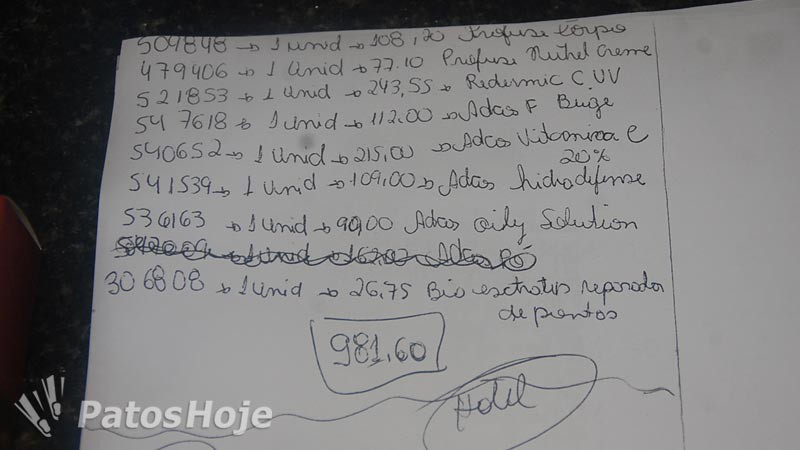 509848 → 1 unid → 108,20 Profuse Corpo
479406 → 1 Unid → 77.10 Profuse Nutrel Creme
521853 → 1 Unid → 243,55 → Redermic C UV
547618 → 1 unid → 112.00 → Adcos F Buge
540652 → 1 Unid → 215,00 → Adcos Vitamina C
20%
541539 → 1 Unid → 109,00 → Adcos hidradefense
536163 → 1 Unid → 90,00 Adcos oily Solution
306808 → 1 Unid → 26,75 Bio extratus reparador
de pontas
981,60
Hotel
PatosHoje